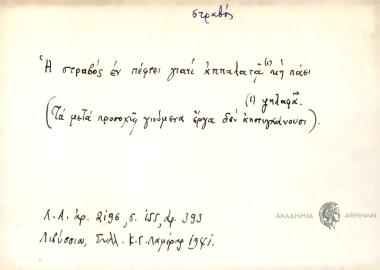 στραβός
Ἡ στραβός ἐν πέφτει γιατί ἀππαλατᾷ⁽¹⁾ κή πάει
(1) ψηλαφᾷ.
(Τά μετά προσοχῆς γινόμενα ἔργα δέν ἀποτυγχάνουσι).
Λ.Α. ἀρ. 2196, σ. 155, ἀρ. 393
Λιβύσσια, Συλλ. Κ. Γ. Λαμέρας 1941.
ΑΚΑΔΗΜΙΑ ΑΘΗΝΩΝ